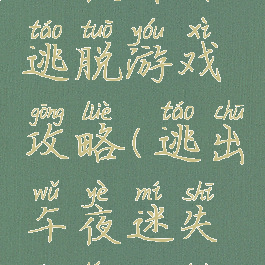 táo tuō yóu xì
逃脱游戏
gōng lüè táo chū
攻略(逃出
wǔ yè mí shī
午夜迷失